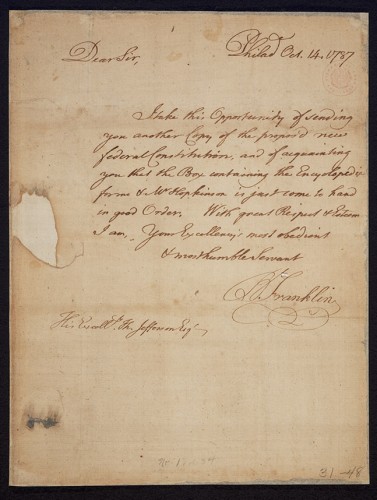 Philad.ᵃ Oct. 14. 1787
Dear Sir,
I take this Opportunity of sending
you another Copy of the propos'd new
federal Constitution, and of acquainting
you that the Box containing the Encyclopedie
for me & Mr Hopkinson is just come to hand
in good Order. With great Respect & Esteem
I am, Your Excellency's most obedient
& most humble Servant
B Franklin
His Excellᵞ Th. Jefferson Esqʳ
31-48